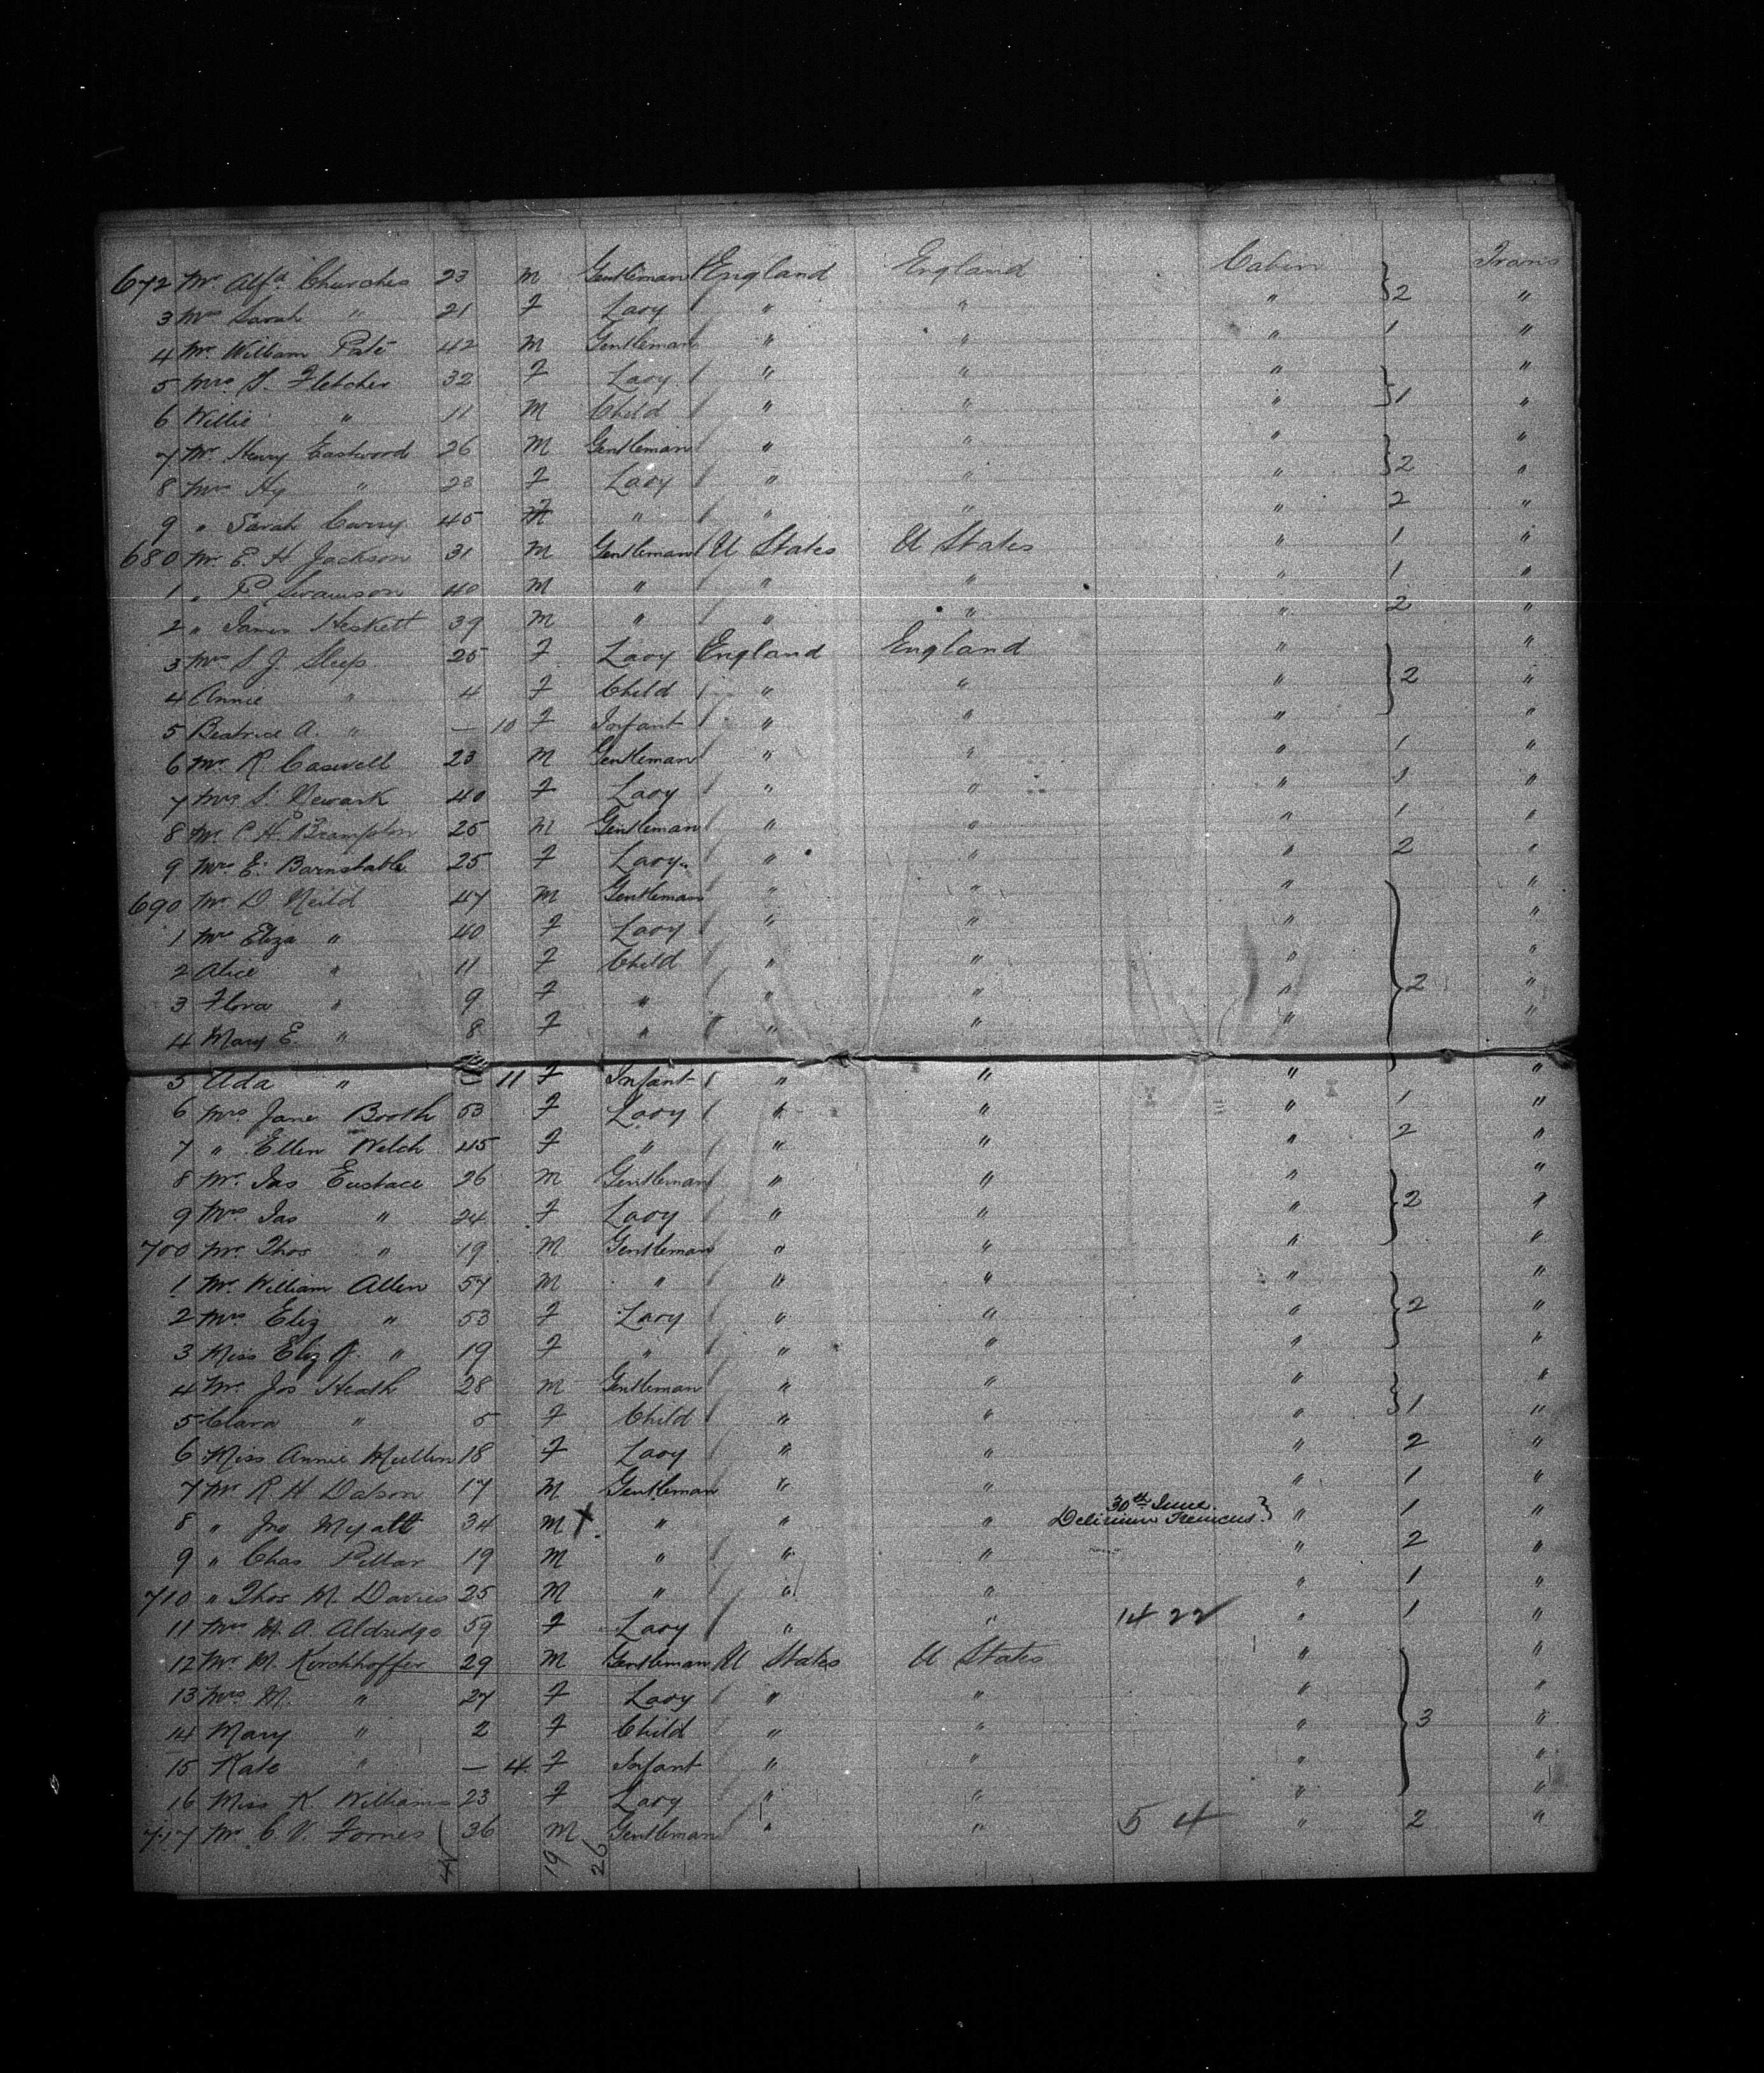 672 Mr Alfd. Churches 23 M Gentleman England England Cabin } 2 Trans
3 Mrs Sarah " 21 F Lady " " " "
4 Mr. William Pate 42 M Gentleman " " " 1 "
5 Mrs. S. Fletcher 32 F Lady " " " "
6 Willie " 11 M Child " " " } 1 "
7 Mr Henry Eastwood 26 M Gentleman " " " "
8 Mrs Hy " 23 F Lady " " " } 2 "
9 " Sarah 45 F " " " " 2 "
680 Mr. E. H Jackson 31 M Gentleman U States U States " 1 "
1 " P Swainson 40 M " " " " 1 "
2 " James Heskett 39 M " " " " 2 "
3 Mrs S J Sleep 25 F Lady England England " "
4 Annie " 4 F Child " " " } 2 "
5 Beatrice A. " — 10 F Infant " " " "
6 Mr. R Caswell 23 M Gentleman " " " 1 "
7 Mrs S. Newark 40 F Lady " " " 1 "
8 Mr. C H. Brampton 25 M Gentleman " " " 1 "
9 Mrs E. Barnstable 25 F Lady " " " 2 "
690 Mr. D Neild 47 M Gentleman " " " "
1 Mrs Eliza " 40 F Lady " " " "
2 Alice " 11 F Child " " " "
3 Flora " 9 F " " " " } 2 "
4 Mary E. " 8 F " " " " "
5 Ada " — 11 F Infant " " " "
6 Mrs Jane Booth 53 F Lady " " " 1 "
7 " Ellen Welch 45 F " " " " 2 "
8 Mr. Jas Eustace 26 M Gentleman " " " "
9 Mrs Jas " 24 F Lady " " " } 2 "
700 Mr. Thos " 19 M Gentleman " " " "
1 Mr William Allen 57 M " " " " "
2 Mrs Eliz " 53 F Lady " " " } 2 "
3 Miss Eliz J. " 19 F " " " " "
4 Mr. Jos Heath 28 M Gentleman " " " "
5 Clara " 5 F Child " " " } 1 "
6 Miss Annie Mullin 18 F Lady " " " 2 "
7 Mr R H Dalson 17 M Gentleman " " " 1 "
30th June
8 " Jno Wyatt 34 M X " " " Delirium Tremens } " 1 "
9 " Chas Pillar 19 M " " " " 2 "
710 " Thos M. Davies 25 M " " " " 1 "
11 Mrs H. A. Aldridge 59 F Lady " " 14 22 " 1 "
12 Mr. M. Kirchhoffer 29 M Gentleman U States U States " "
13 Mrs M. " 27 F Lady " " " "
14 Mary " 2 F Child " " " } 3 "
15 Kate " — 4 F Infant " " " "
16 Miss K. Williams 23 F Lady " " " "
717 Mr C V. Fornes 36 M Gentleman " " 5 4 " 2 "
19 26